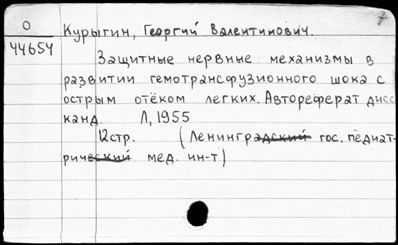 О
44654
Курыгин, Георгий Валентинович.
Защитные нервные механизмы в
развитии гемотрансфузионного шока с
острым отёком легких. Автореферат дисс
канд. Л, 1955
12стр. (Ленинградский гос. педиат-
рический мед. ин-т)